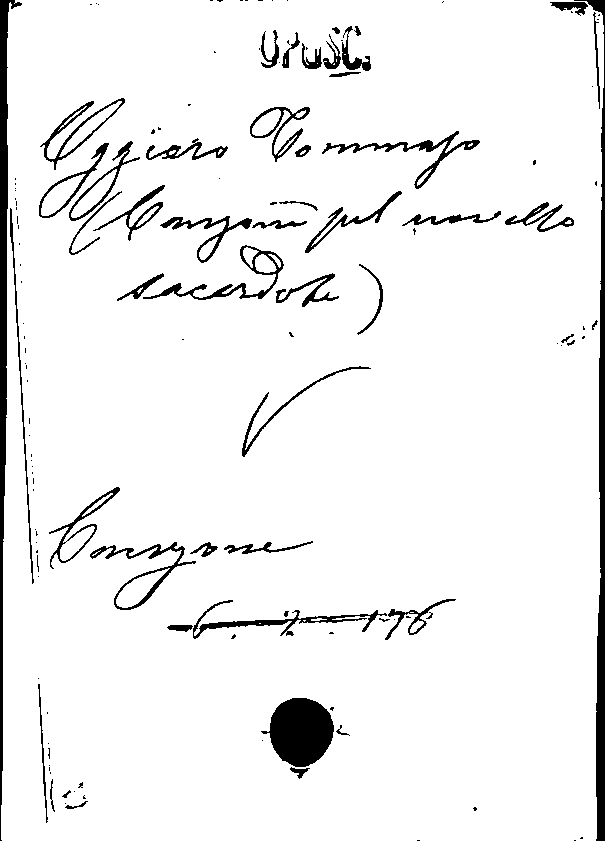 OPUSC.
Oggiero Tommaso
(Canzone pel novello
sacerdote)
Canzone
6. 7. 176